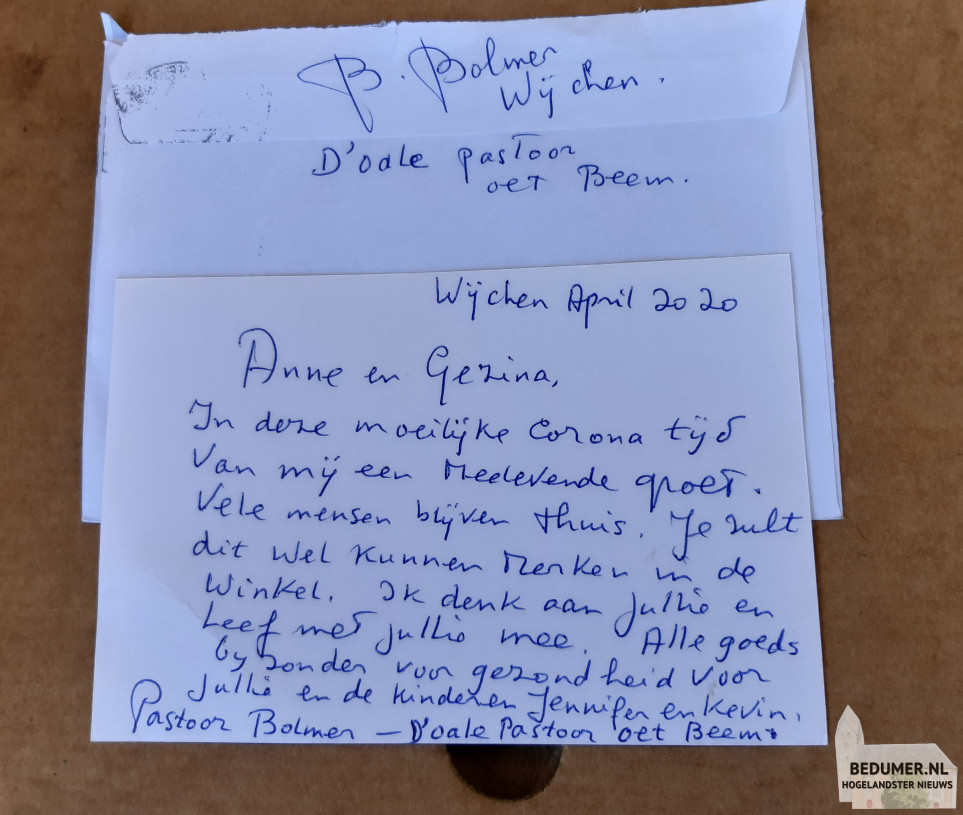 B. Bolmer
Wijchen.
D'oale pastoor
oet Beem.
Wijchen April 2020
Anne en Gezina,
In deze moeilijke Corona tijd
Van mij een Meelevende groet.
Vele mensen blijven thuis. Je zult
dit wel kunnen Merken in de
Winkel. Ik denk aan jullie en
Leef met jullie mee. Alle goeds
byzonder voor gezondheid voor
jullie en de kinderen Jennifer en Kevin.
Pastoor Bolmer – D'oale Pastoor oet Beem.
BEDUMER.NL
HOGELANDSTER NIEUWS